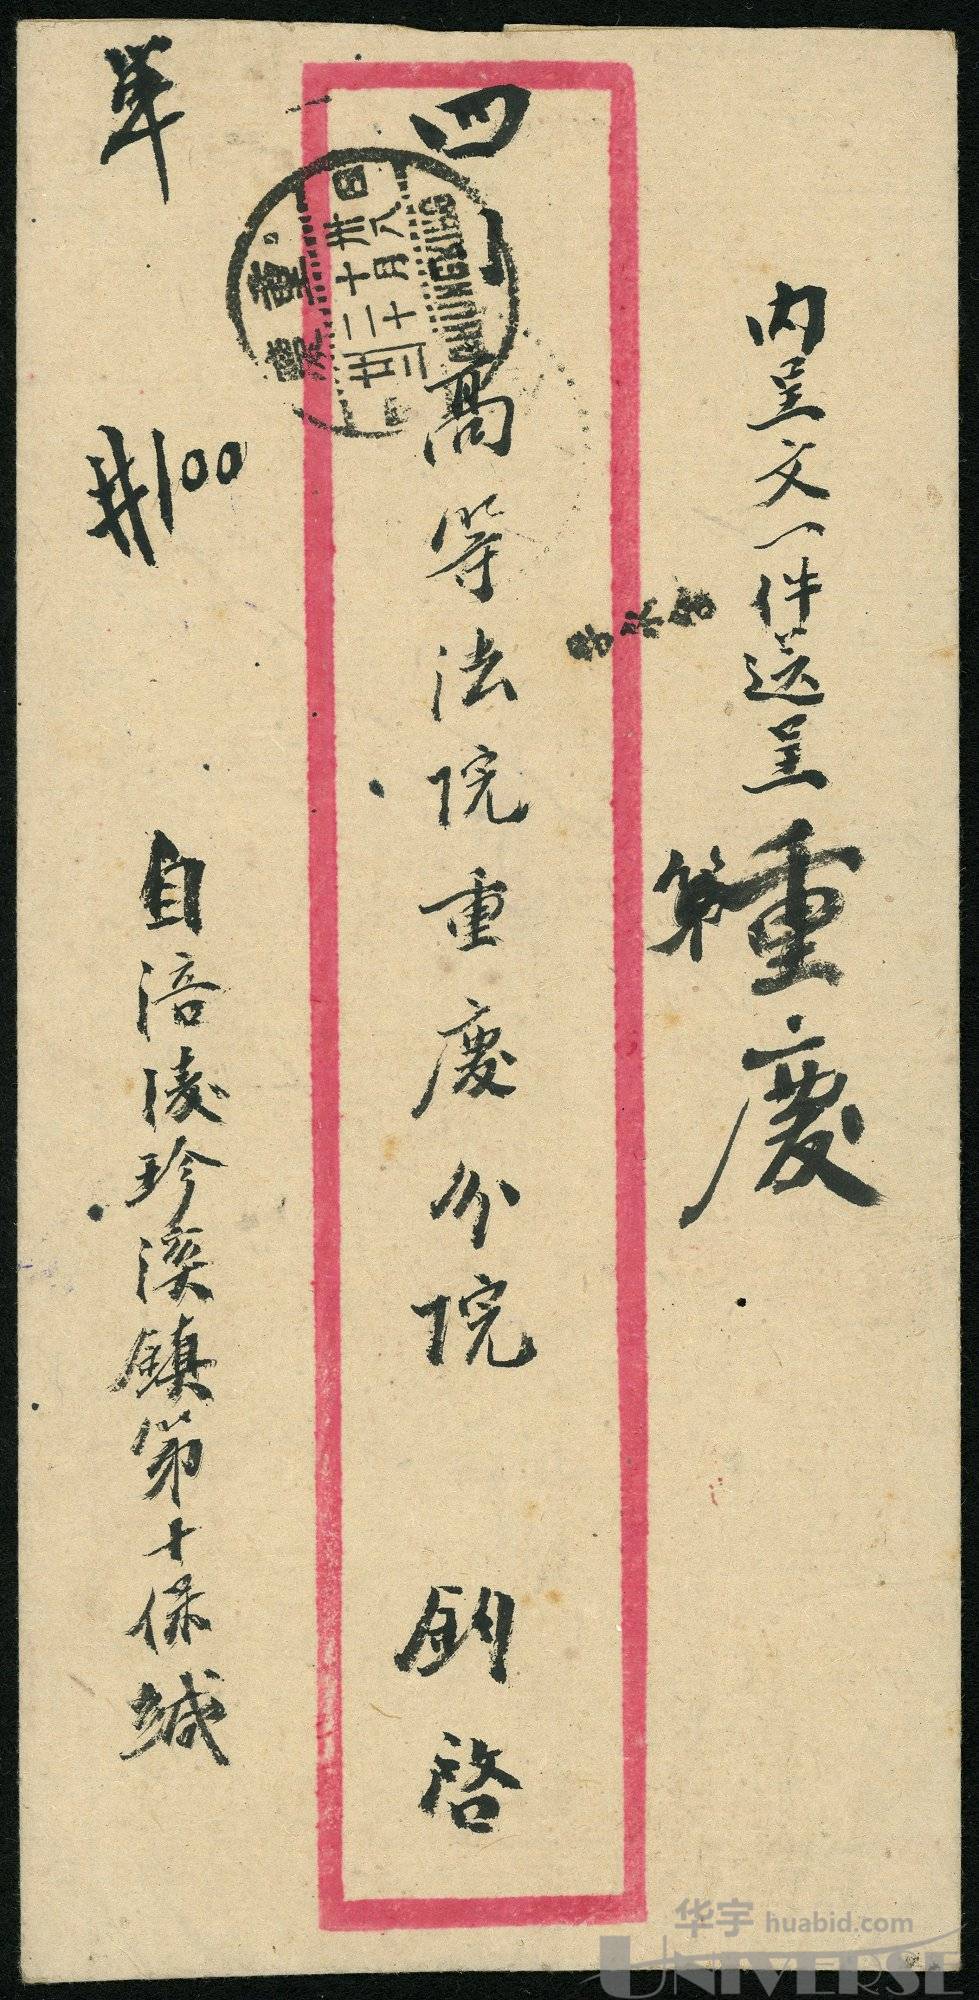 内呈文一件送呈
重慶
第
四川高等法院重慶分院 鈞啓
重慶
卅四
十月八
二十
廿二
CHUNGKING
單
#100
自涪陵珍溪鎮第十保緘
华宇 huabid.com
UNIVERSE